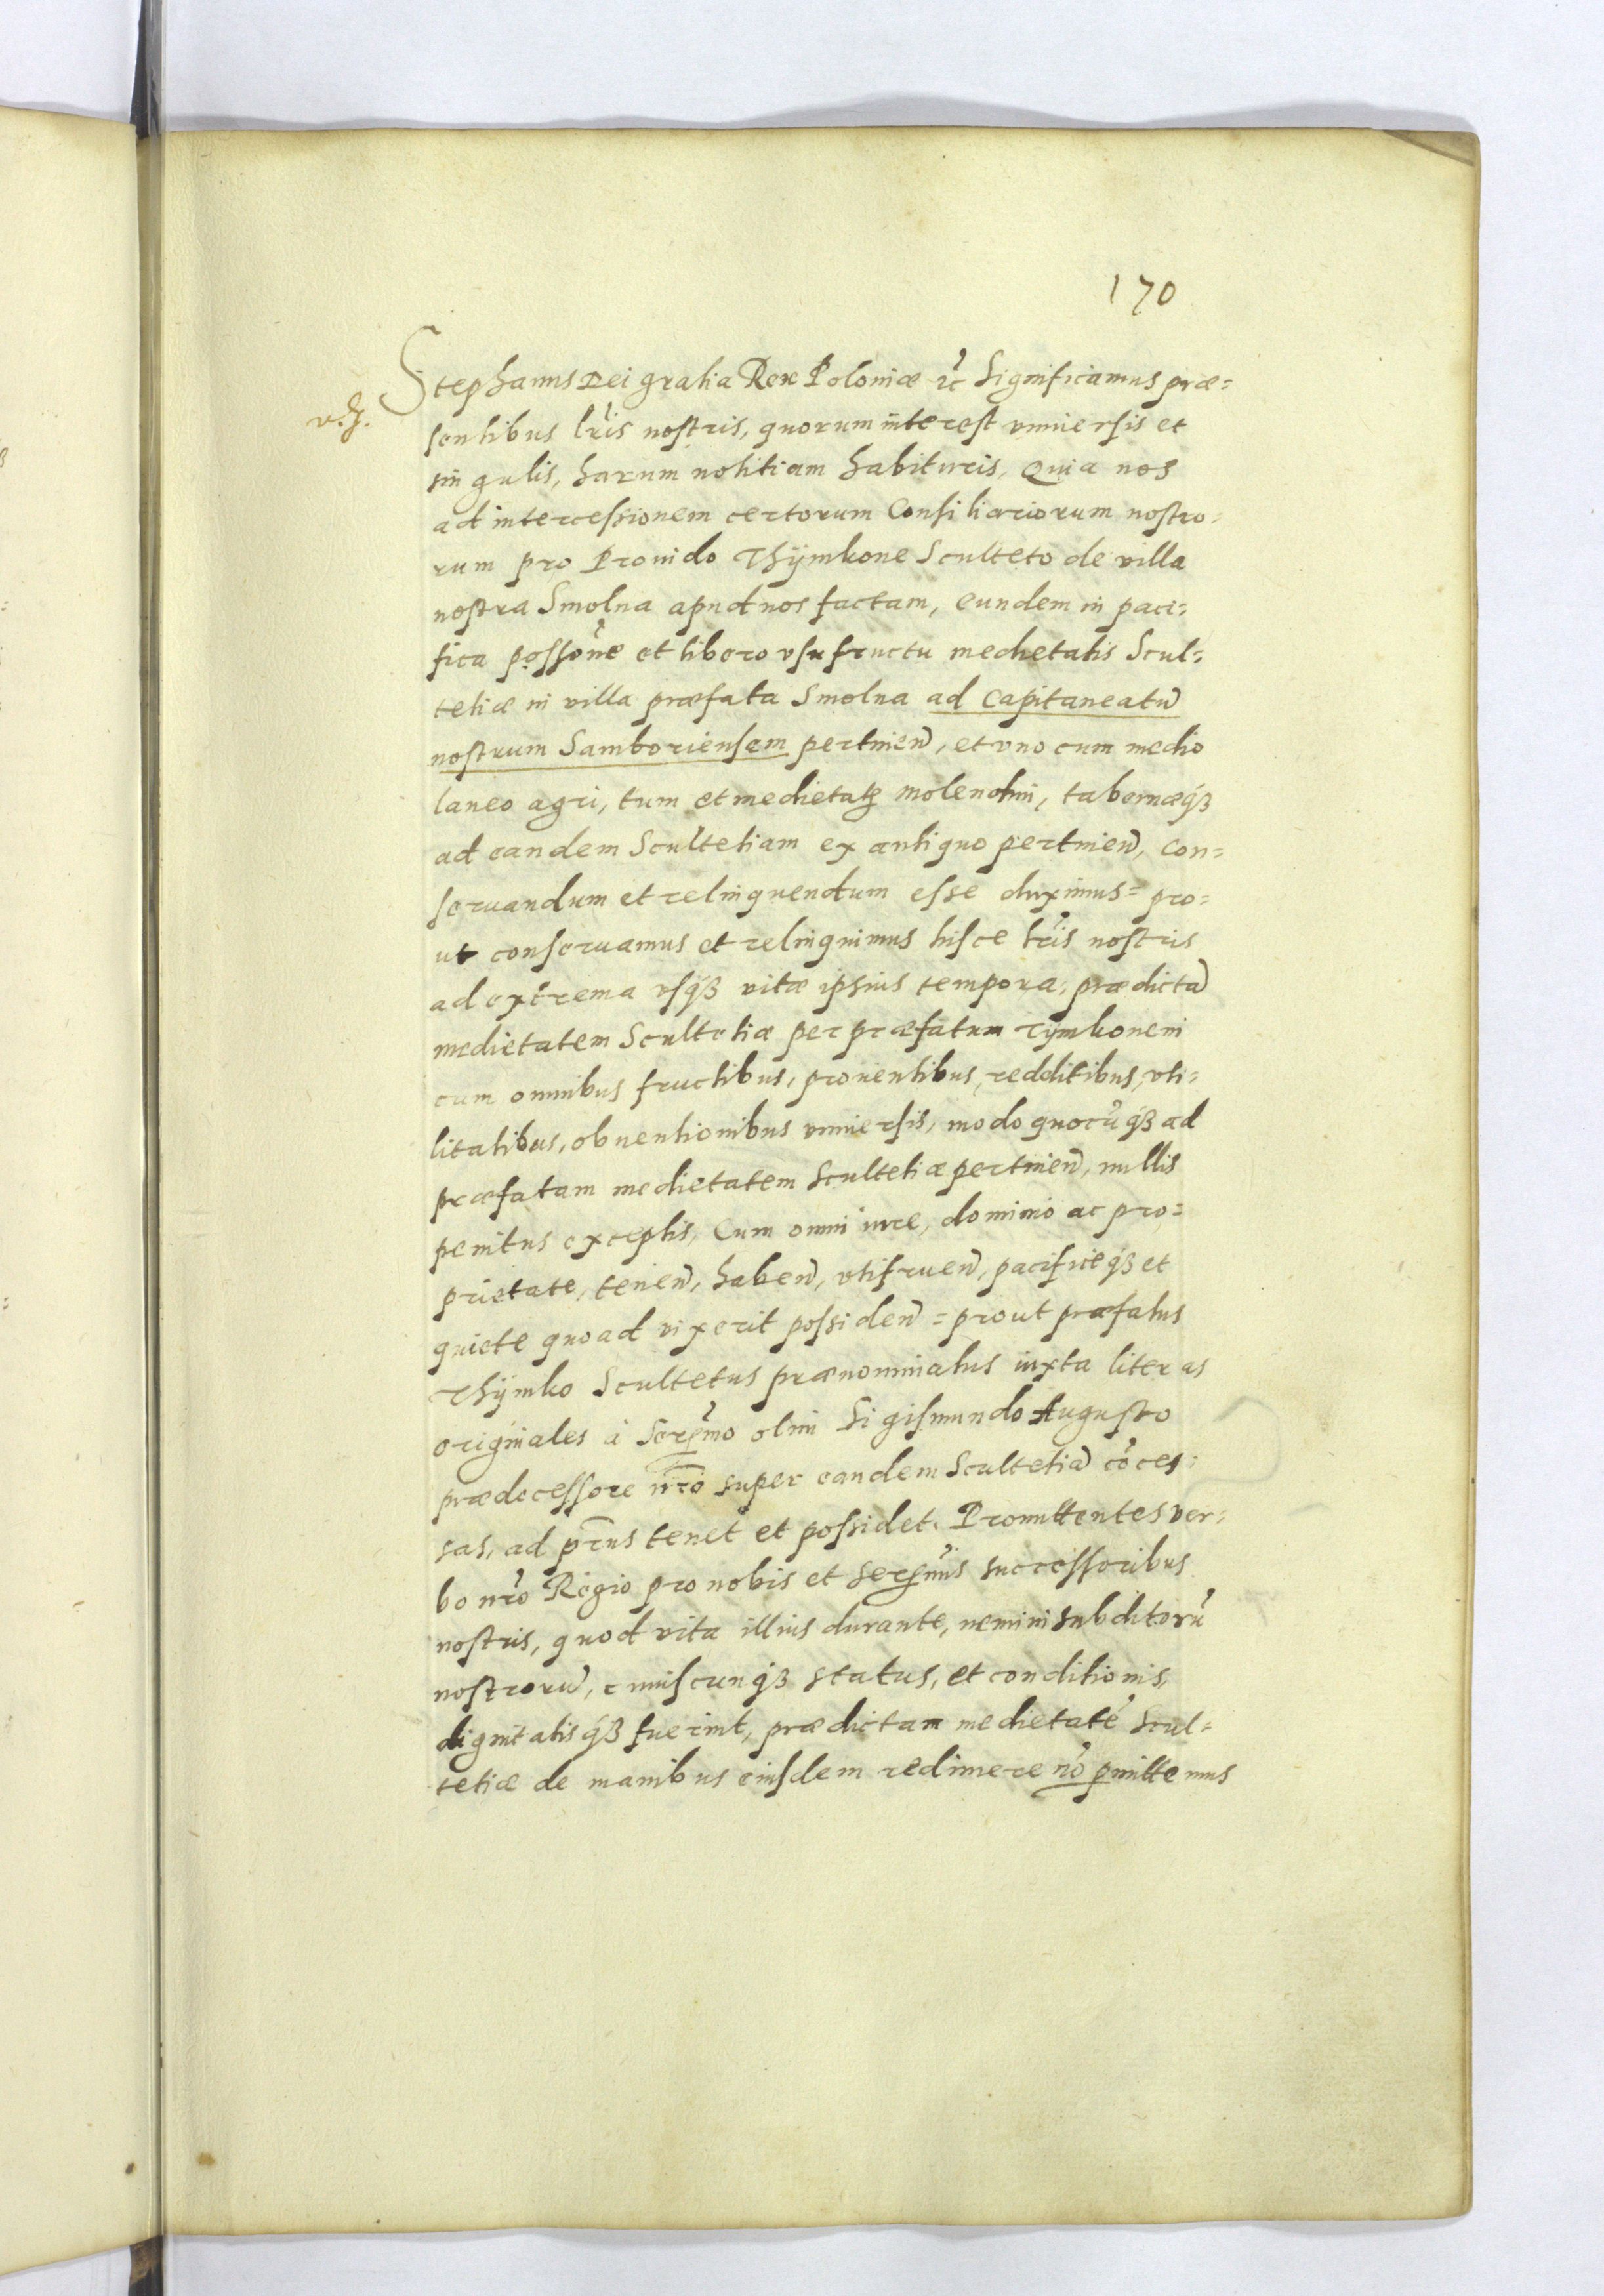 170
Stephanus Dei gratia Rex Poloniæ ꝛc̃ Significamus præ=
sentibus lr̃is nostris, quorum interest vniuersis et
singulis, harum notitiam habituris, Quia nos
ad intercessionem certorum Consiliariorum nostro=
rum pro Prouido Thÿmkone Sculteto de villa
nostra Smolna apud nos factam, eundem in paci=
fica possõne et libero vsufructu medietatis Scul=
tetiæ in villa præfata Smolna ad Capitaneatũ
nostrum Samboriensem pertineñ, et vno cum medio
laneo agri, tum et medietatę molendini, tabernæqꝫ
ad eandem Scultetiam ex antiquo pertineñ, con=
seruandum et relinquendum esse duximus= pro=
ut conseruamus et relinquimus hisce lr̃is nostris
ad extrema vsqꝫ vitæ ipsius tempora, prædictã
medietatem Scultetiæ per præfatum Tÿmkonem
cum omnibus fructibus, prouentibus, redditibus, vti=
litatibus, obuentionibus vniuersis, modo quocũqꝫ ad
præfatam medietatem Scultetiæ pertineñ, nullis
penitus exceptis, Cum omni iure, dominio ac pro=
prietate, teneñ, habeñ, vtifrueñ, pacificeqꝫ et
quiete quoad vixerit possideñ = prout præfatus
Thÿmko Scultetus prænominatus iuxta literas
originales à Serꝫmo olim Sigismundo Augusto
prædecessore nr̃o super eandem Scultetiã cõces=
sas, ad pr̃ns tenet et possidet. Promittentes ver=
bo nr̃o Regio pro nobis et Serꝫmis successoribus
nostris, quod vita illius durante, nemini subditorũ
nostrorũ, cuiuscunqꝫ status, et conditionis,
dignitatisqꝫ fuerint, prædictam medietatẽ Scul=
tetiæ de manibus eiusdem redimere nõ ꝑmittemus